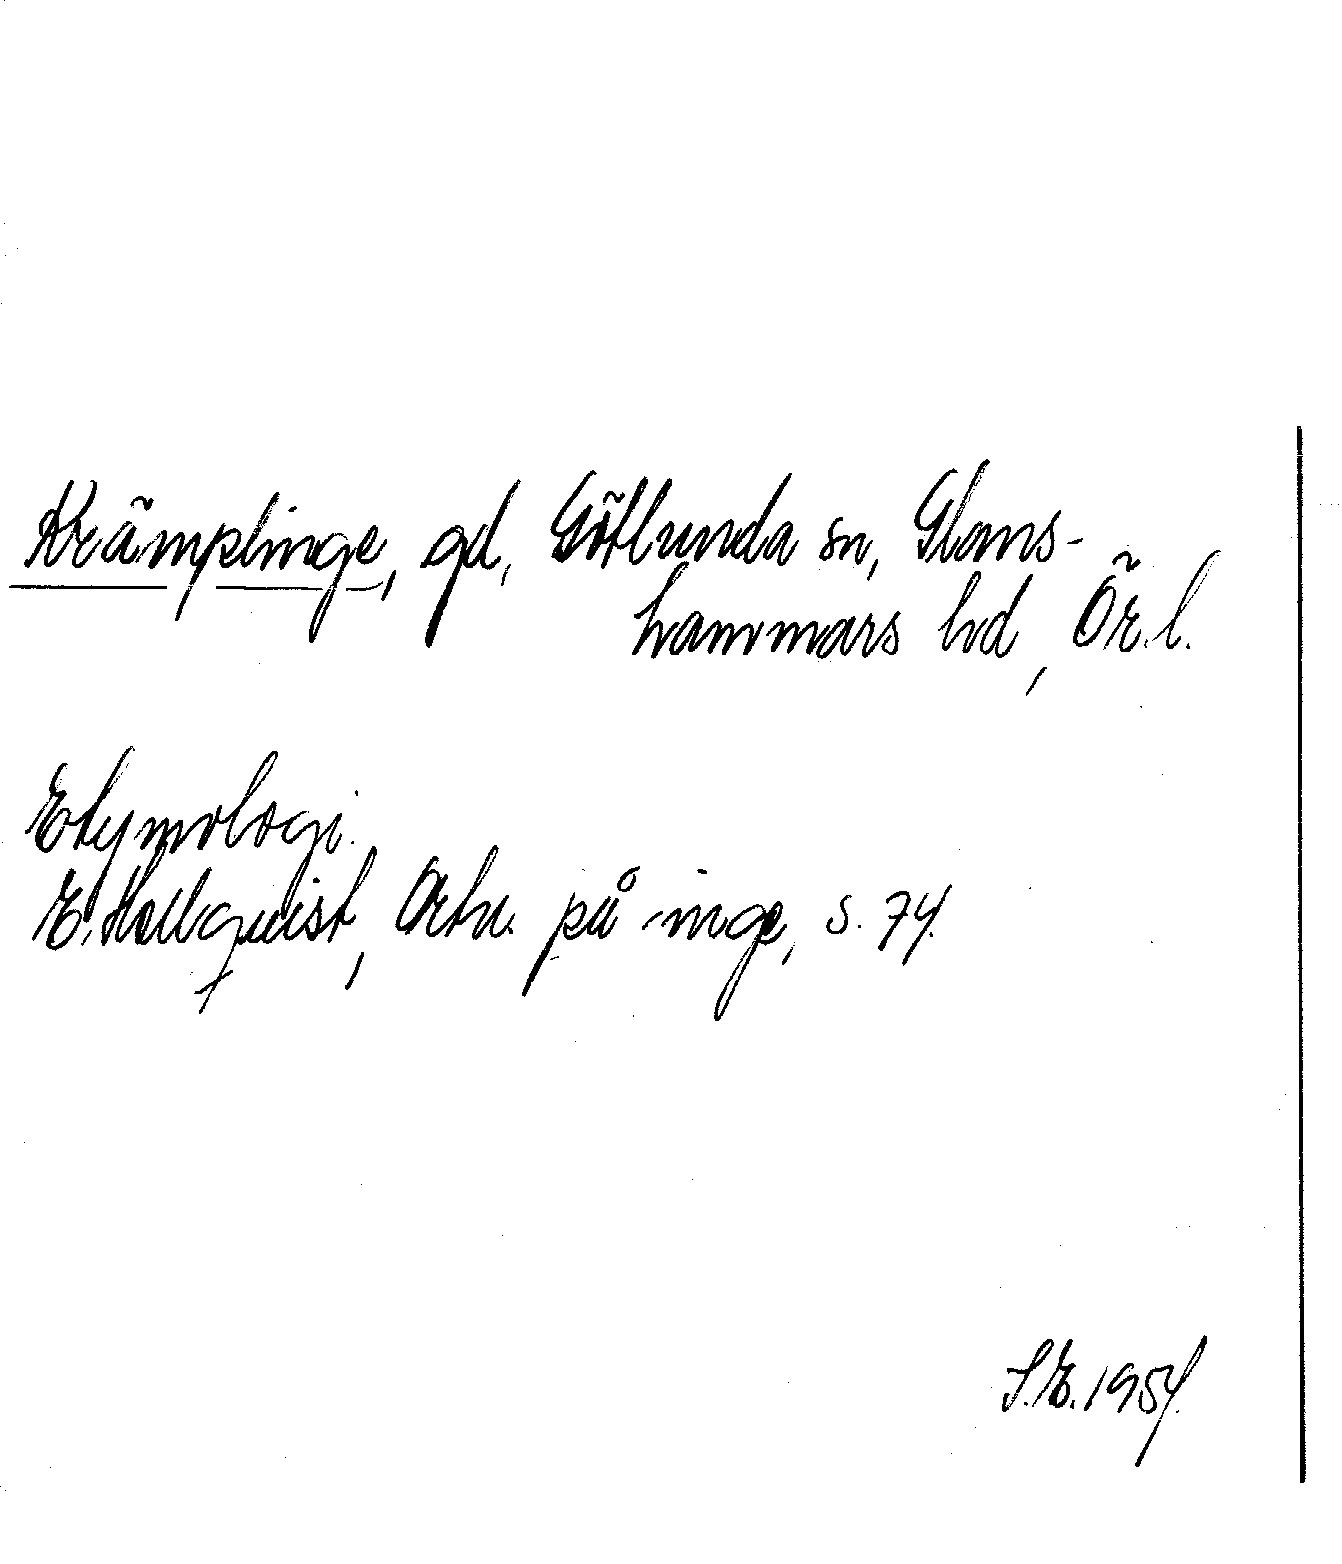 Krämplinge, gd, Götlunda sn, Glans-
hammars hd, Ör.l.
Etymologi.
E. Hellquist, Ortn. på -inge, s. 74.
S.E. 1954.